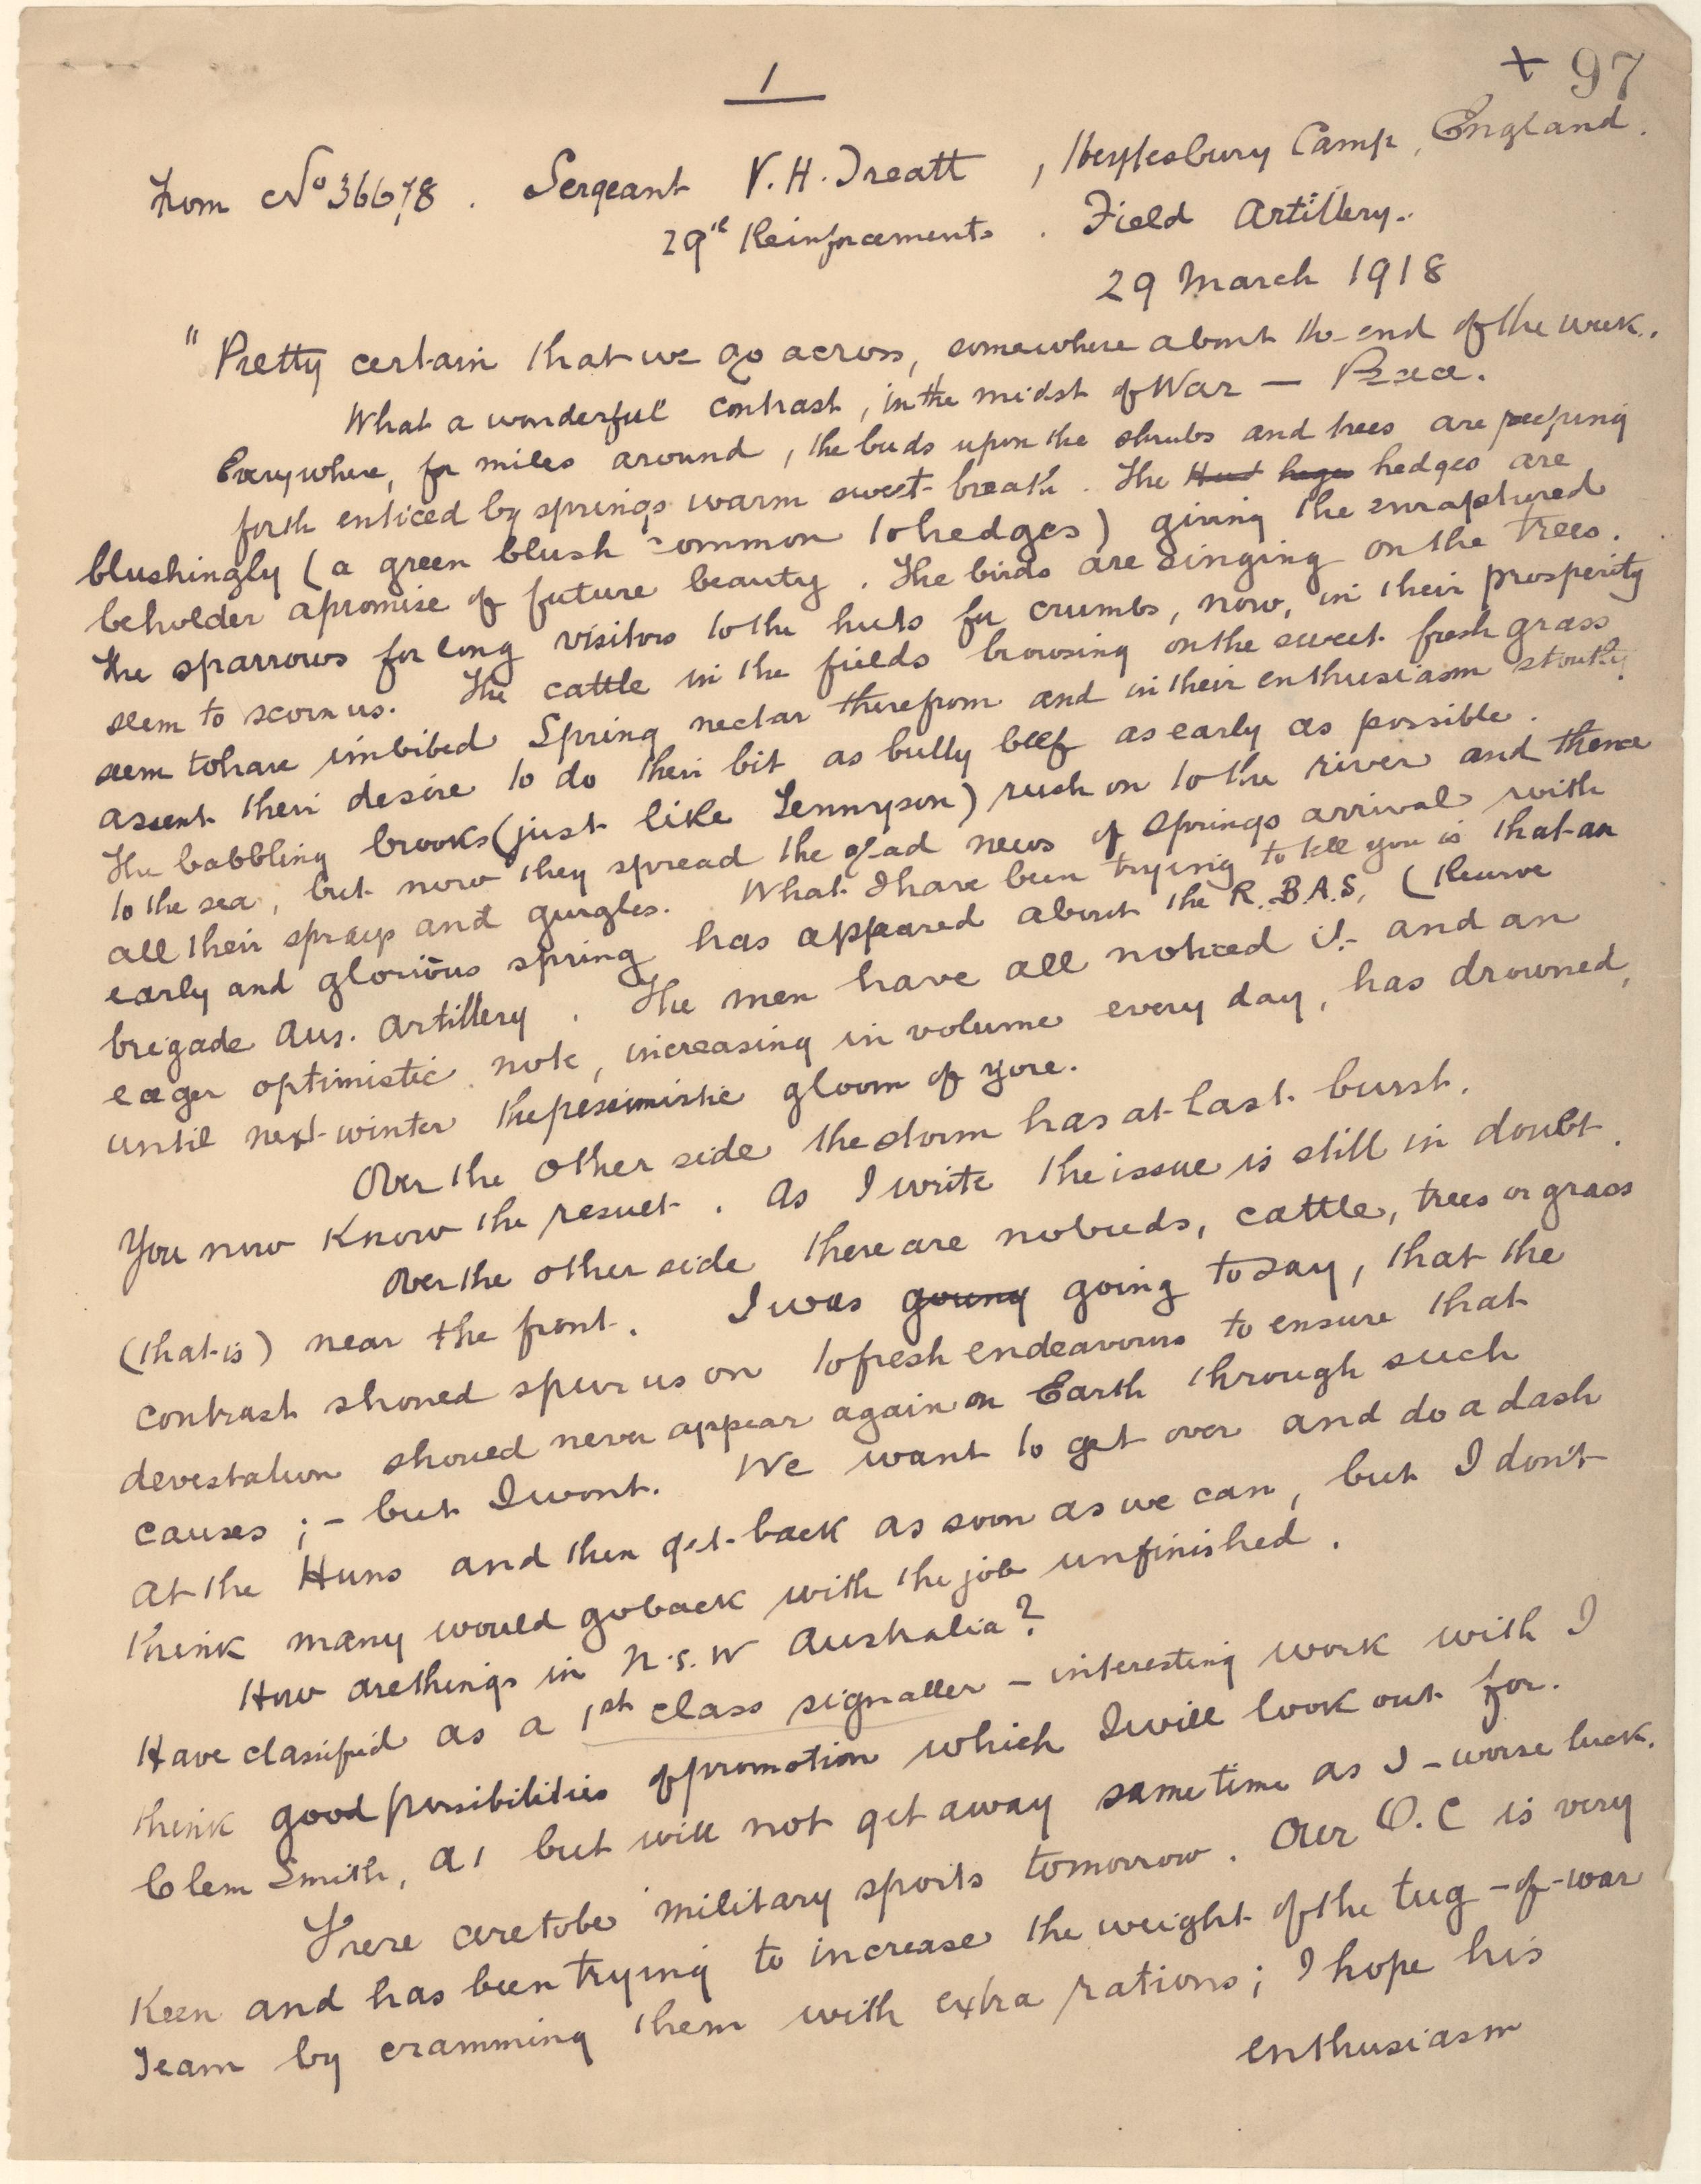 1
+ 97
From No 36678. Sergeant V. H. Treatt, Heytesbury Camp, England.
29th Reinforcements. Field Artillery.
29 March 1918
"Pretty certain that we go across, somewhere about the end of the week.
What a wonderful contrast, in the midst of War — Peace.
Everywhere, for miles around, the buds upon the shrubs and trees are peeping
forth enticed by springs warm sweet breath. The hedges are
blushingly (a green blush common to hedges) giving the enraptured
beholder a promise of future beauty. The birds are singing on the trees.
The sparrows for long visitors to the huts for crumbs, now, in their prosperity
seem to scorn us. The cattle in the fields browsing on the sweet fresh grass
seem to have imbibed Spring nectar therefrom and in their enthusiasm stoutly
assent their desire to do their bit as bully beef as early as possible.
The babbling brooks (just like Tennyson) rush on to the river and thence
to the sea, but now they spread the glad news of springs arrival with
all their sprays and gurgles. What I have been trying to tell you is that an
early and glorious spring has appeared about the R.B.A.S. (Reserve
brigade Aus. Artillery. The men have all noticed it - and an
eager optimistic note, increasing in volume every day, has drowned,
until next winter the pessimistic gloom of yore.
Over the other side the storm has at last burst.
You now know the result. As I write the issue is still in doubt.
Over the other side there are no buds, cattle, trees or grass
(that is) near the front. I was going to say, that the
contrast should spur us on to fresh endeavours to ensure that
devestation should never appear again on Earth through such
causes ; - but I wont. We want to get over and do a dash
at the Huns and then get back as soon as we can, but I don't
think many would go back with the job unfinished.
How are things in N.S.W Australia?
Have classified as a 1st class signaller - interesting work with I
think good possibilities of promotion which I will look out for.
Clem Smith, A1 but will not get away same time as I - worse luck.
There are to be military sports tomorrow. Our O.C is very
Keen and has been trying to increase the weight of the tug-of-war
Team by cramming them with extra rations; I hope his
enthusiasm